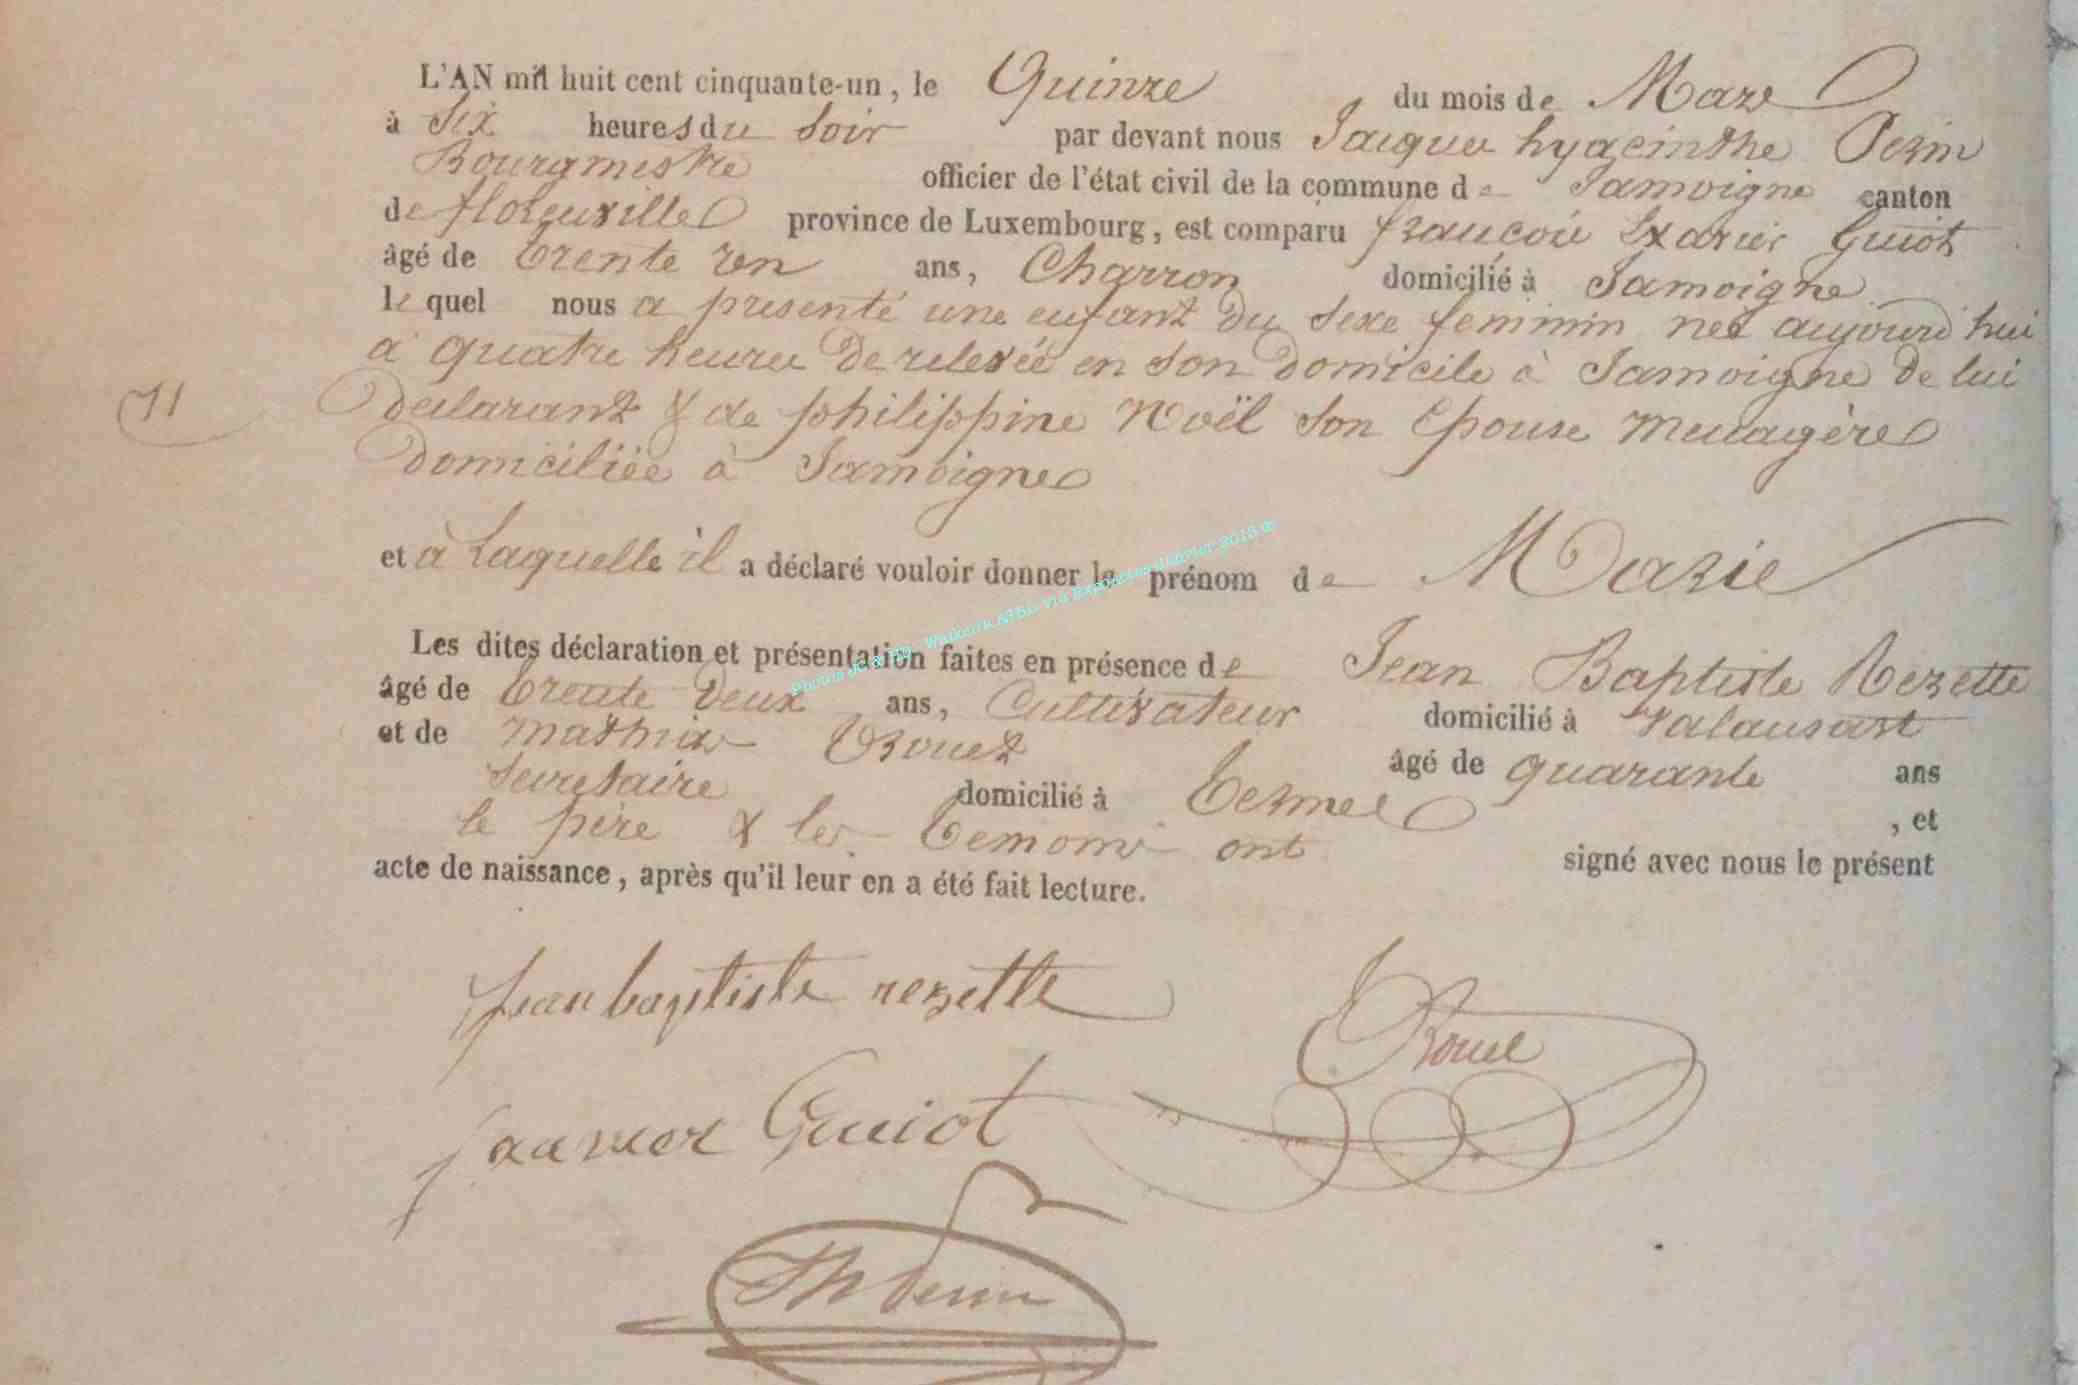 L'AN mil huit cent cinquante-un, le Quinze du mois de Mars
à Six heures du Soir par devant nous Jacques hyacinthe Perin
Bourgmestre officier de l'état civil de la commune de Jamoigne canton
de florenville province de Luxembourg, est comparu françois Xavier Guiot
âgé de trente un ans, Charron domicilié à Jamoigne
lequel nous a presenté une enfant du sexe feminin neé aujourd'hui
a quatre heures de relevée en son domicile à Jamoigne de lui
11
declarant & de philippine Noël son epouse menagère
domiciliée à Jamoigne
et à Laquelle il a déclaré vouloir donner le prénom de Marie
Les dites déclaration et présentation faites en présence de Jean Baptiste Rezette
âgé de trente deux ans, Cultivateur domicilié à Valansart
et de mathias Rouet âgé de quarante ans
secretaire domicilié à termes , et
le père & les temoins ont signé avec nous le présent
acte de naissance, après qu'il leur en a été fait lecture.
jean baptiste rezette
Guiot